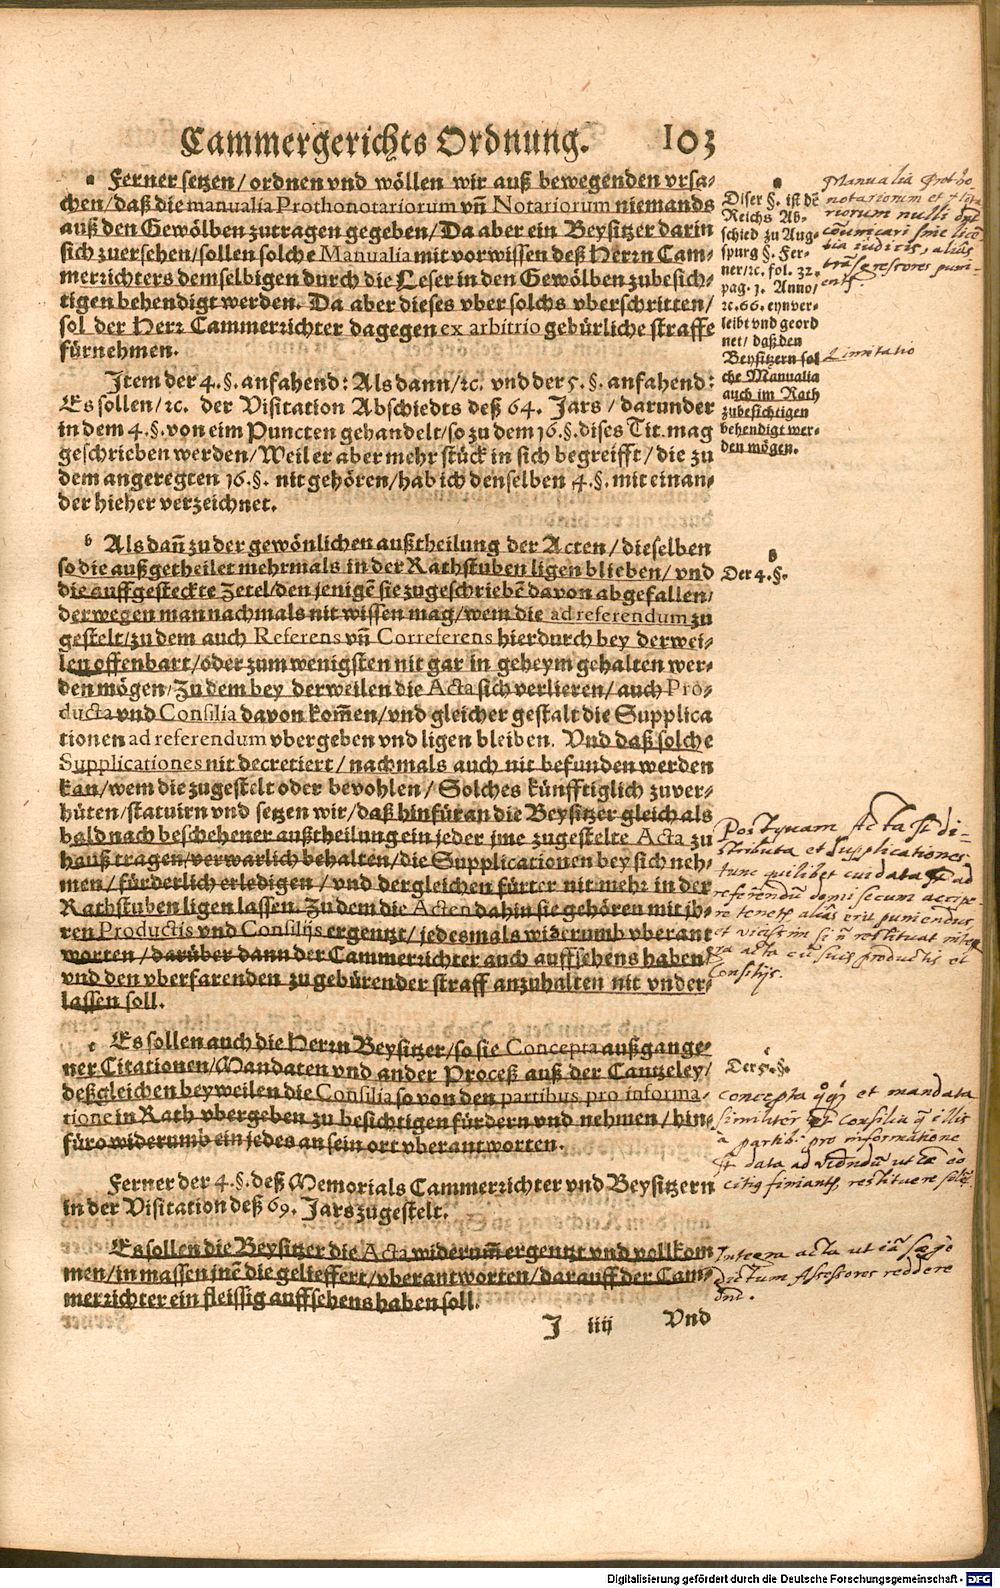 Cammergerichts Ordnung. 103
a Ferner setzen / ordnen vnd wöllen wir auß bewegenden vrsa-
chen / daß die manualia Prothonotariorum vñ Notariorum niemands
auß den Gewölben zutragen gegeben / Da aber ein Beysitzer darin
sich zuersehen / sollen solche Manualia mit vorwissen deß Herrn Cam-
merrichters demselbigen durch die Leser in den Gewölben zubesich-
tigen behendigt werden. Da aber dieses vber solchs vberschritten /
sol der Herr Cammerrichter dagegen ex arbitrio gebürliche straffe
fürnehmen.
Item der 4. §. anfahend: Als dann / ꝛc. vnd der 5. §. anfahend:
Es sollen / ꝛc. der Visitation Abschiedts deß 64. Jars / darunder
in dem 4. §. von eim Puncten gehandelt / so zu dem 16. §. dises Tit. mag
geschrieben werden / Weil er aber mehr stück in sich begreifft / die zu
dem angeregten 16. §. nit gehören / hab ich denselben 4. §. mit einan-
der hieher verzeichnet.
b Als dañ zu der gewönlichen außtheilung der Acten / dieselben
so die außgetheilet mehrmals in der Rathstuben ligen blieben / vnd
die auffgesteckte Zetel / den jenigẽ sie zugeschriebẽ davon abgefallen /
derwegen man nachmals nit wissen mag / wem die ad referendum zu
gestelt / zu dem auch Referens vñ Correferens hierdurch bey derwei-
len offenbart / oder zum wenigsten nit gar in geheym gehalten wer-
den mögen / Zu dem bey derweilen die Acta sich verlieren / auch Pro-
ducta vnd Consilia davon kom̃en / vnd gleicher gestalt die Supplica
tionen ad referendum vbergeben vnd ligen bleiben. Vnd daß solche
Supplicationes nit decretiert / nachmals auch nit befunden werden
kan / wem die zugestelt oder bevohlen / Solches künfftiglich zuver-
hüten / statuirn vnd setzen wir / daß hinfür an die Beysitzer gleich als
bald nach beschehener außtheilung ein jeder jme zugestelte Acta zu
hauß tragen / verwarlich behalten / die Supplicationen bey sich neh-
men / fürderlich erledigen / vnd dergleichen fürter nit mehr in der
Rathstuben ligen lassen. Zu dem die Acten dahin sie gehören mit ih-
ren Productis vnd Consilijs ergentzt / jedesmals widerumb vberant
worten / darüber dann der Cammerrichter auch auffsehens haben /
vnd den vberfarenden zu gebürender straff anzuhalten nit vnder-
lassen soll.
c Es sollen auch die Herrn Beysitzer / so sie Concepta außgange-
ner Citationen / Mandaten vnd ander Proceß auß der Cantzeley /
deßgleichen beyweilen die Consilia so von den partibus pro informa-
tione in Rath vbergeben zu besichtigen fürdern vnd nehmen / hin-
füro widerumb ein jedes an sein ort vberantworten.
Ferner der 4. §. deß Memorials Cammerrichter vnd Beysitzern
in der Visitation deß 69. Jars zugestelt.
Es sollen die Beysitzer die Acta widerum̃ ergentzt vnd vollkom
men / in massen jnẽ die gelieffert / vberantworten / darauff der Cam-
merrichter ein fleissig auffsehens haben soll.
J iiij Vnd
a
Diser §. ist dẽ
Reichs Ab-
schied zu Aug-
spurg §. Fer-
ner / ꝛc. fol. 32.
pag. 1. Anno /
ꝛc. 66. eynver-
leibt vnd geord
net / daß den
Beysitzern sol
che Manualia
auch im Rath
zubesichtigen
behendigt wer-
den mögen.
Manualia Protho-
notariorum et
nulli
iudicis, alias
Limitatio
b
Der 4. §.
Postquam Acta st di-
stributa et supplicationes
tunc quilibet cui data st ad
domi secum accipe-
re alias erit puniendus
et si restituat
acta cũ suis productis et
Consilijs.
c
Der 5. §.
Concepta et mandata
Consilia illis
a partib pro informatione
st data ad
restituere
Integra acta ut
dictum Assessores reddere